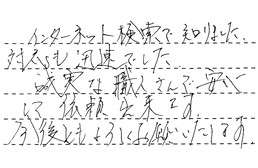 インターネット検索で知りました。
対応も迅速でした
誠実な職人さんで安心
して依頼出来ます
今後ともよろしくお願いいたします